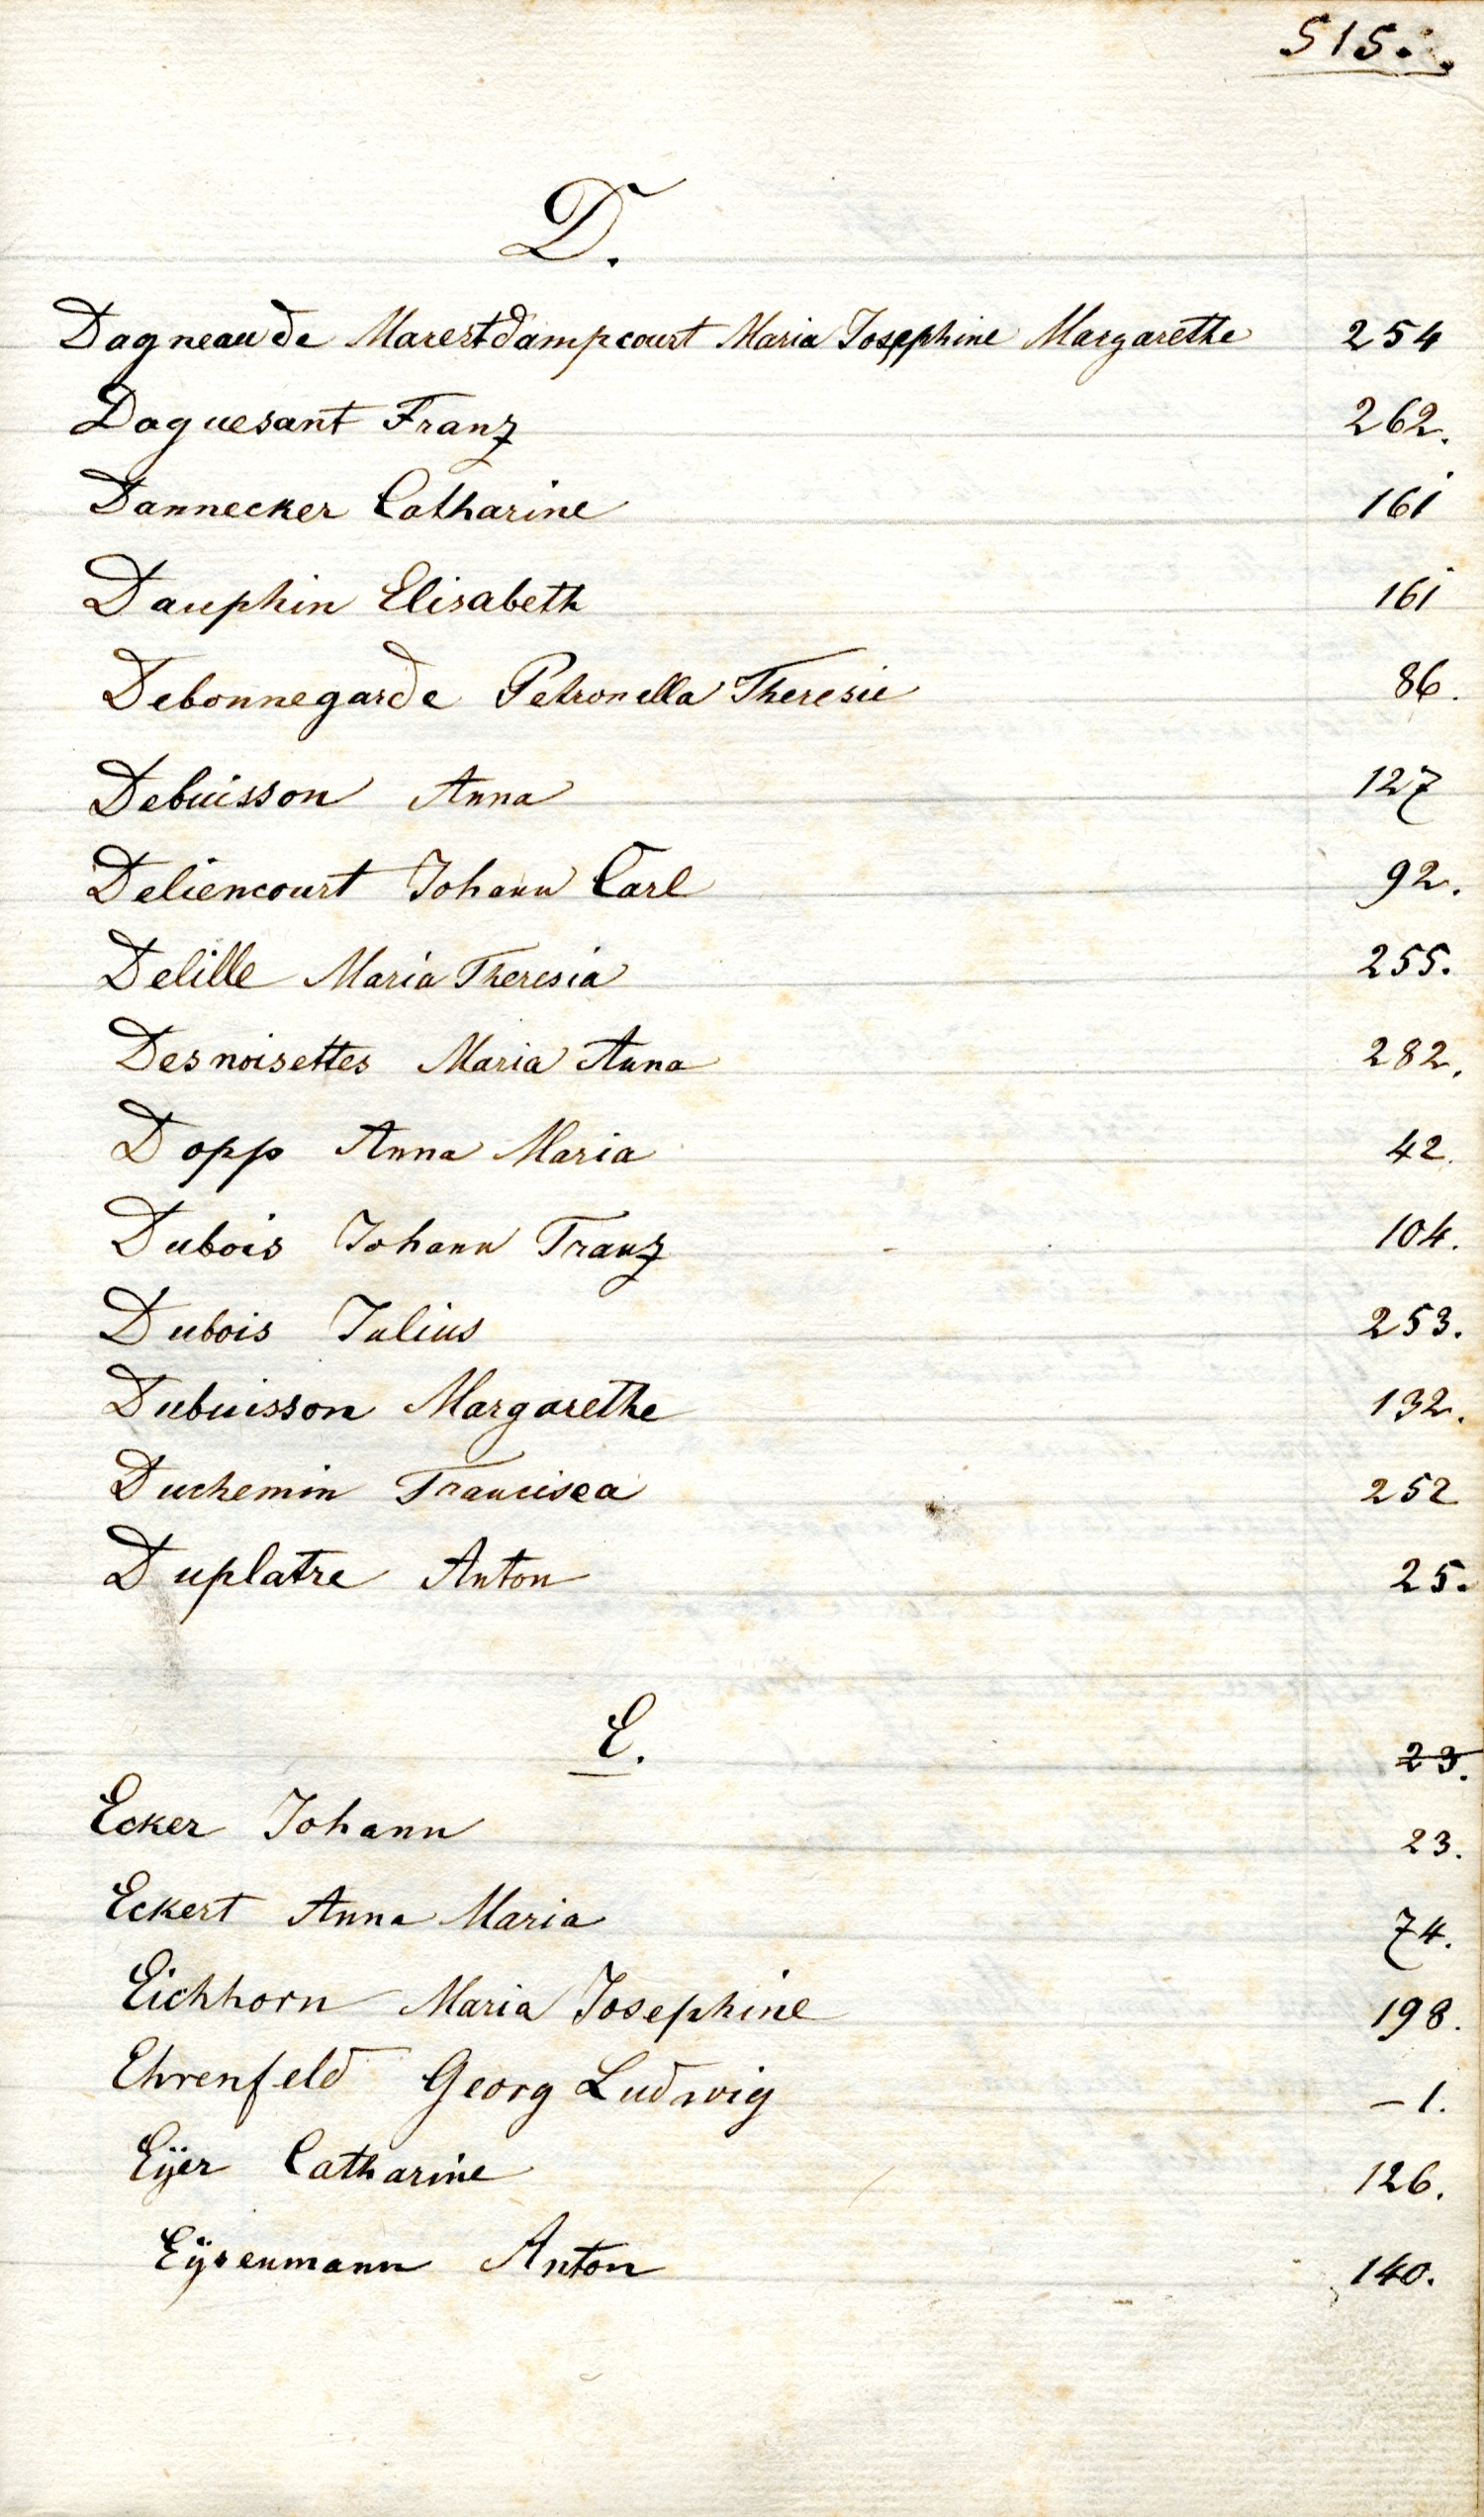 515.
D.
Dagneau de Marestdampcourt Maria Josephine Margarethe 254
Daguesant Franz 262.
Dannecker Catharine 161
Dauphin Elisabeth 161
Debonnegarde Petronella Theresie 86.
Debuisson Anna 127
Deliencourt Johann Carl 92.
Delille Maria Theresia 255.
Desnoisettes Maria Anna 282.
Dopp Anna Maria 42.
Dubois Johann Franz 104.
Dubois Julius 253.
Dubuisson Margarethe 132.
Duchemin Francisca 252
Duplatre Anton 25.
E.
23.
Ecker Johann 23.
Eckert Anna Maria 74.
Eichhorn Maria Josephine 198.
Ehrenfeld Georg Ludwig – 1.
Eÿer Catharine 126.
Eÿsenmann Anton 140.